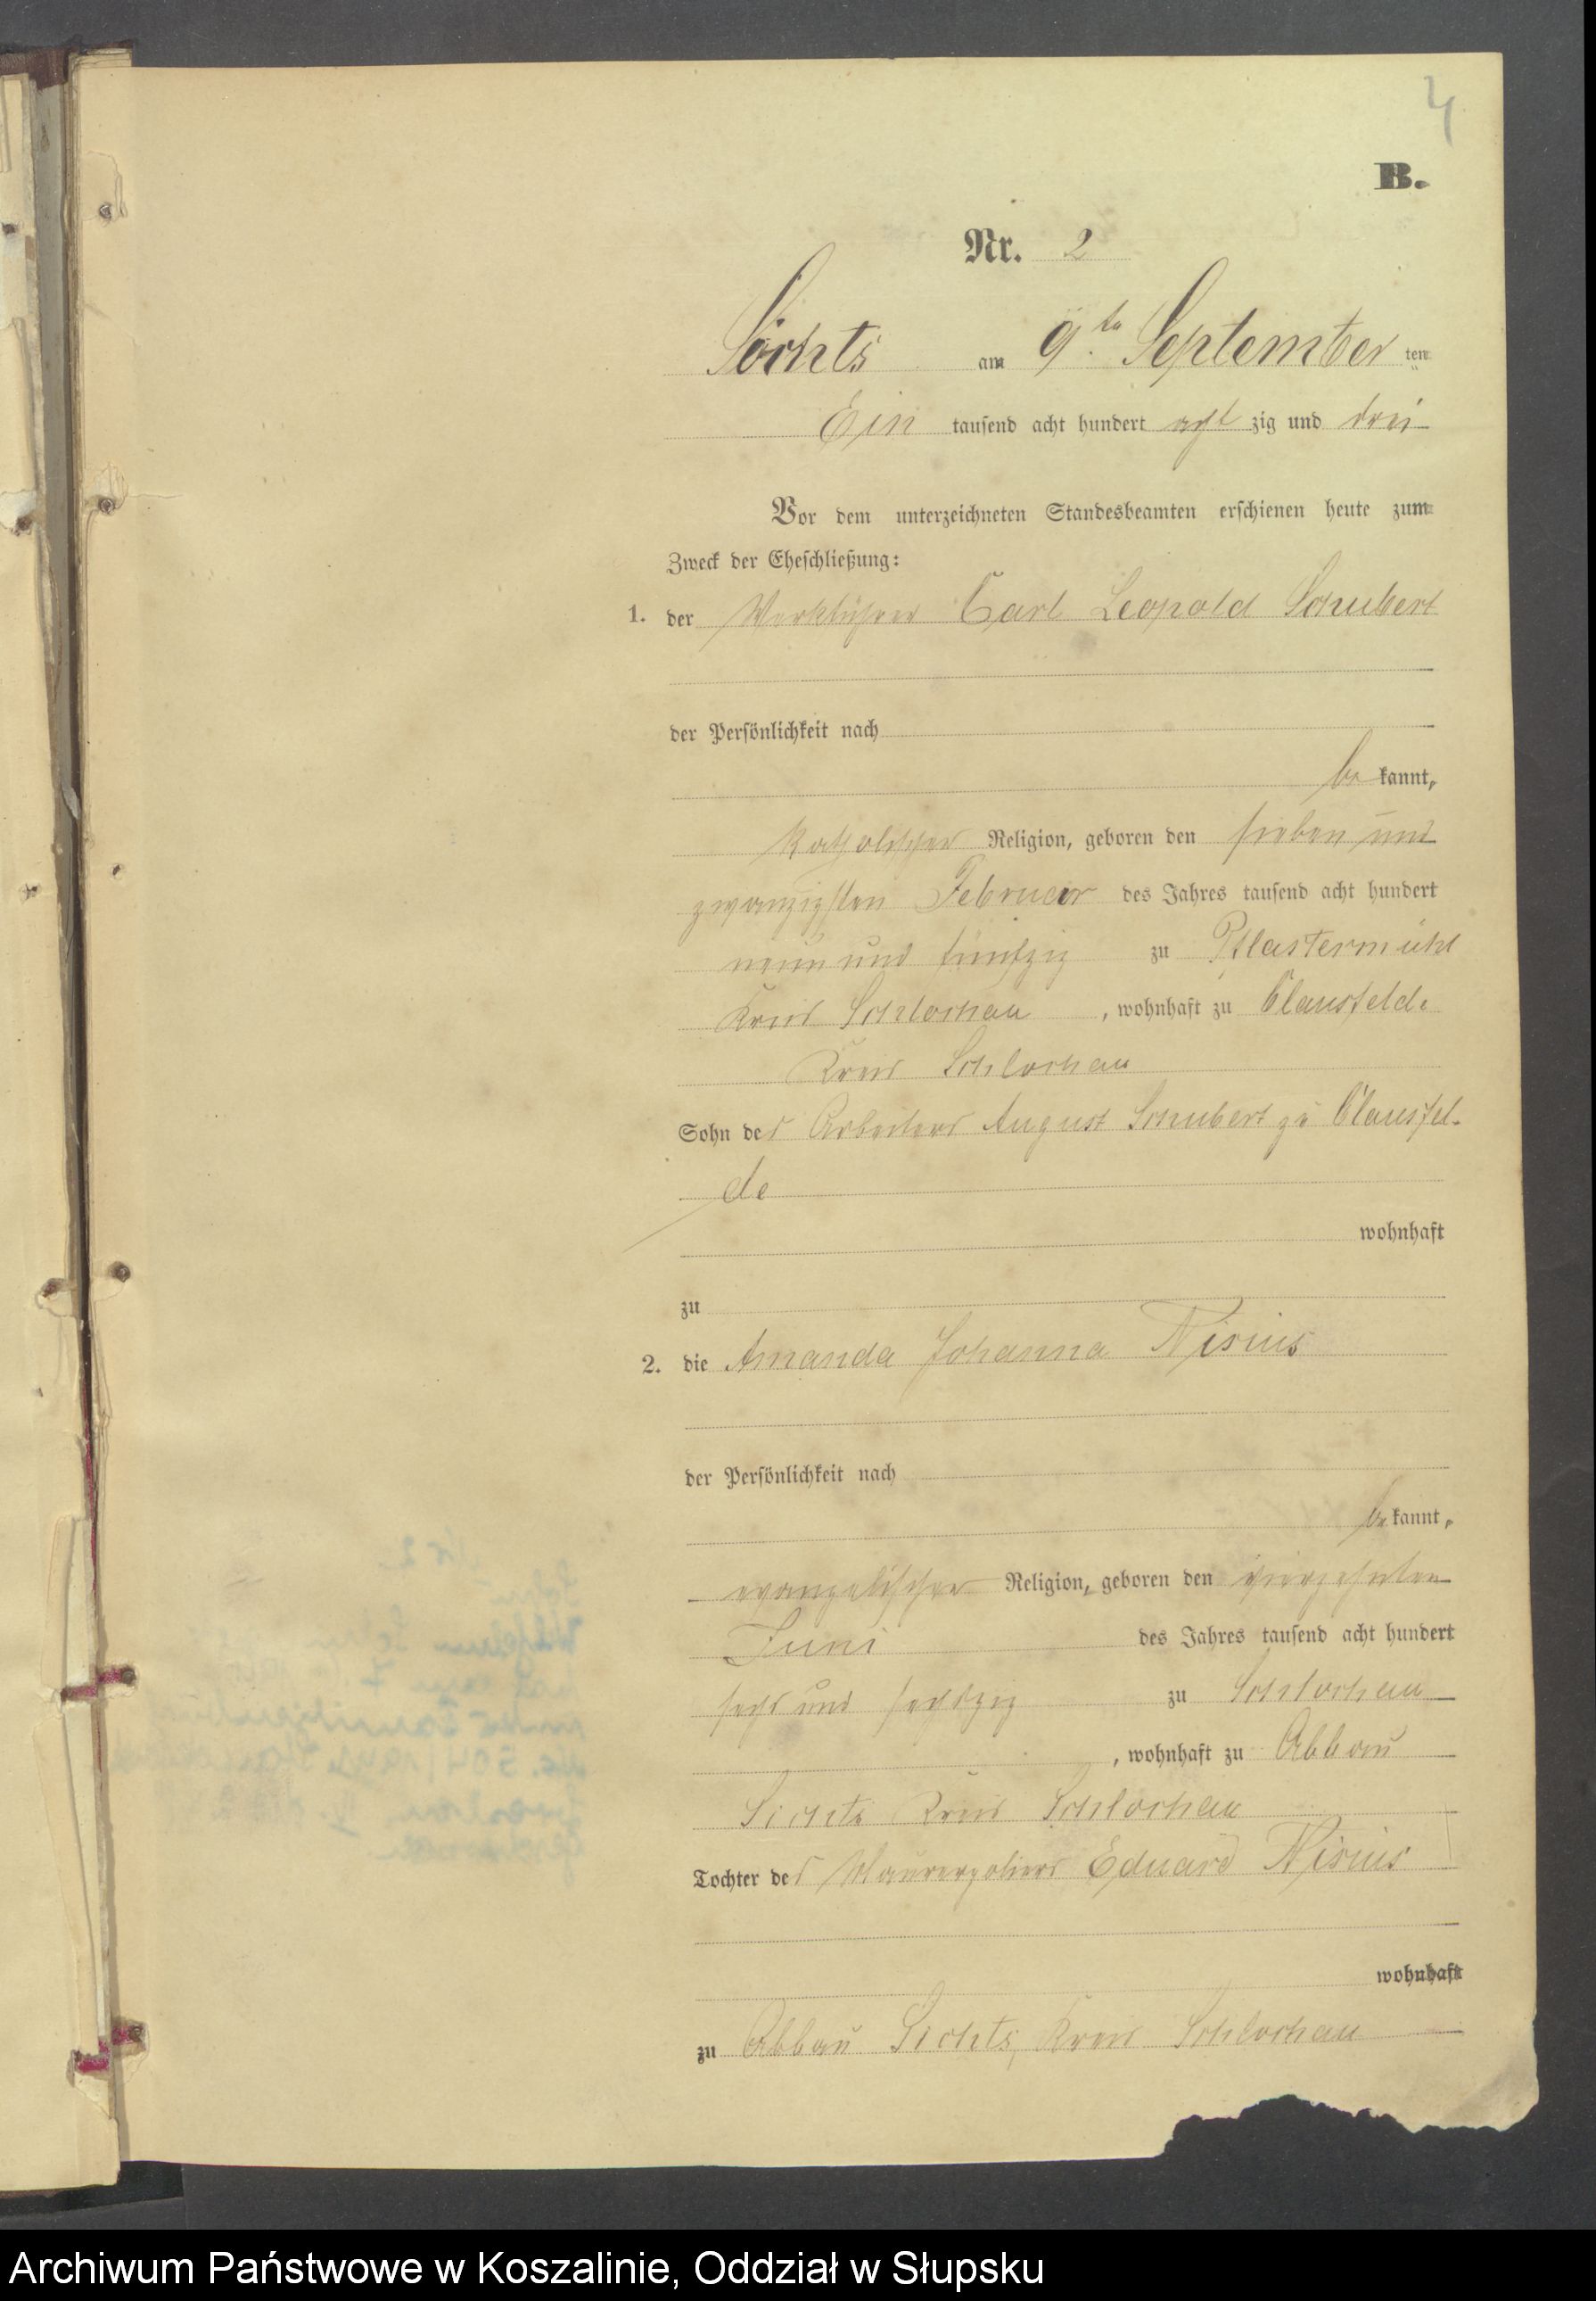 4
B.
Nr. 2
Sichts am 9.ten September ten
Ein tausend acht hundert acht zig und drei
Vor dem unterzeichneten Standesbeamten erschienen heute zum
Zweck der Eheschließung:
1. der Werkführer Carl Leopold Schubert
der Persönlichkeit nach
be kannt,
katholischer Religion, geboren den sieben und
zwanzigsten Februar des Jahres tausend acht hundert
neun und fünfzig zu Pflastermühl
Kreis Schlochau, wohnhaft zu Clausfelde
Kreis Schlochau
Sohn des Arbeiters August Schubert zu Clausfel-
de
wohnhaft
zu
2. die Amanda Johanna Nisius
der Persönlichkeit nach
be kannt,
evangelischer Religion, geboren den vierzehnten
Juni des Jahres tausend acht hundert
sechs und sechszig zu Schlochau
, wohnhaft zu Abbau
Sichts Kreis Schlochau
Tochter des Maurerpoliers Eduard Nisius
wohnhaft
zu Abbau Sichts, Kreis Schlochau
Archiwum Państwowe w Koszalinie, Oddział w Słupsku